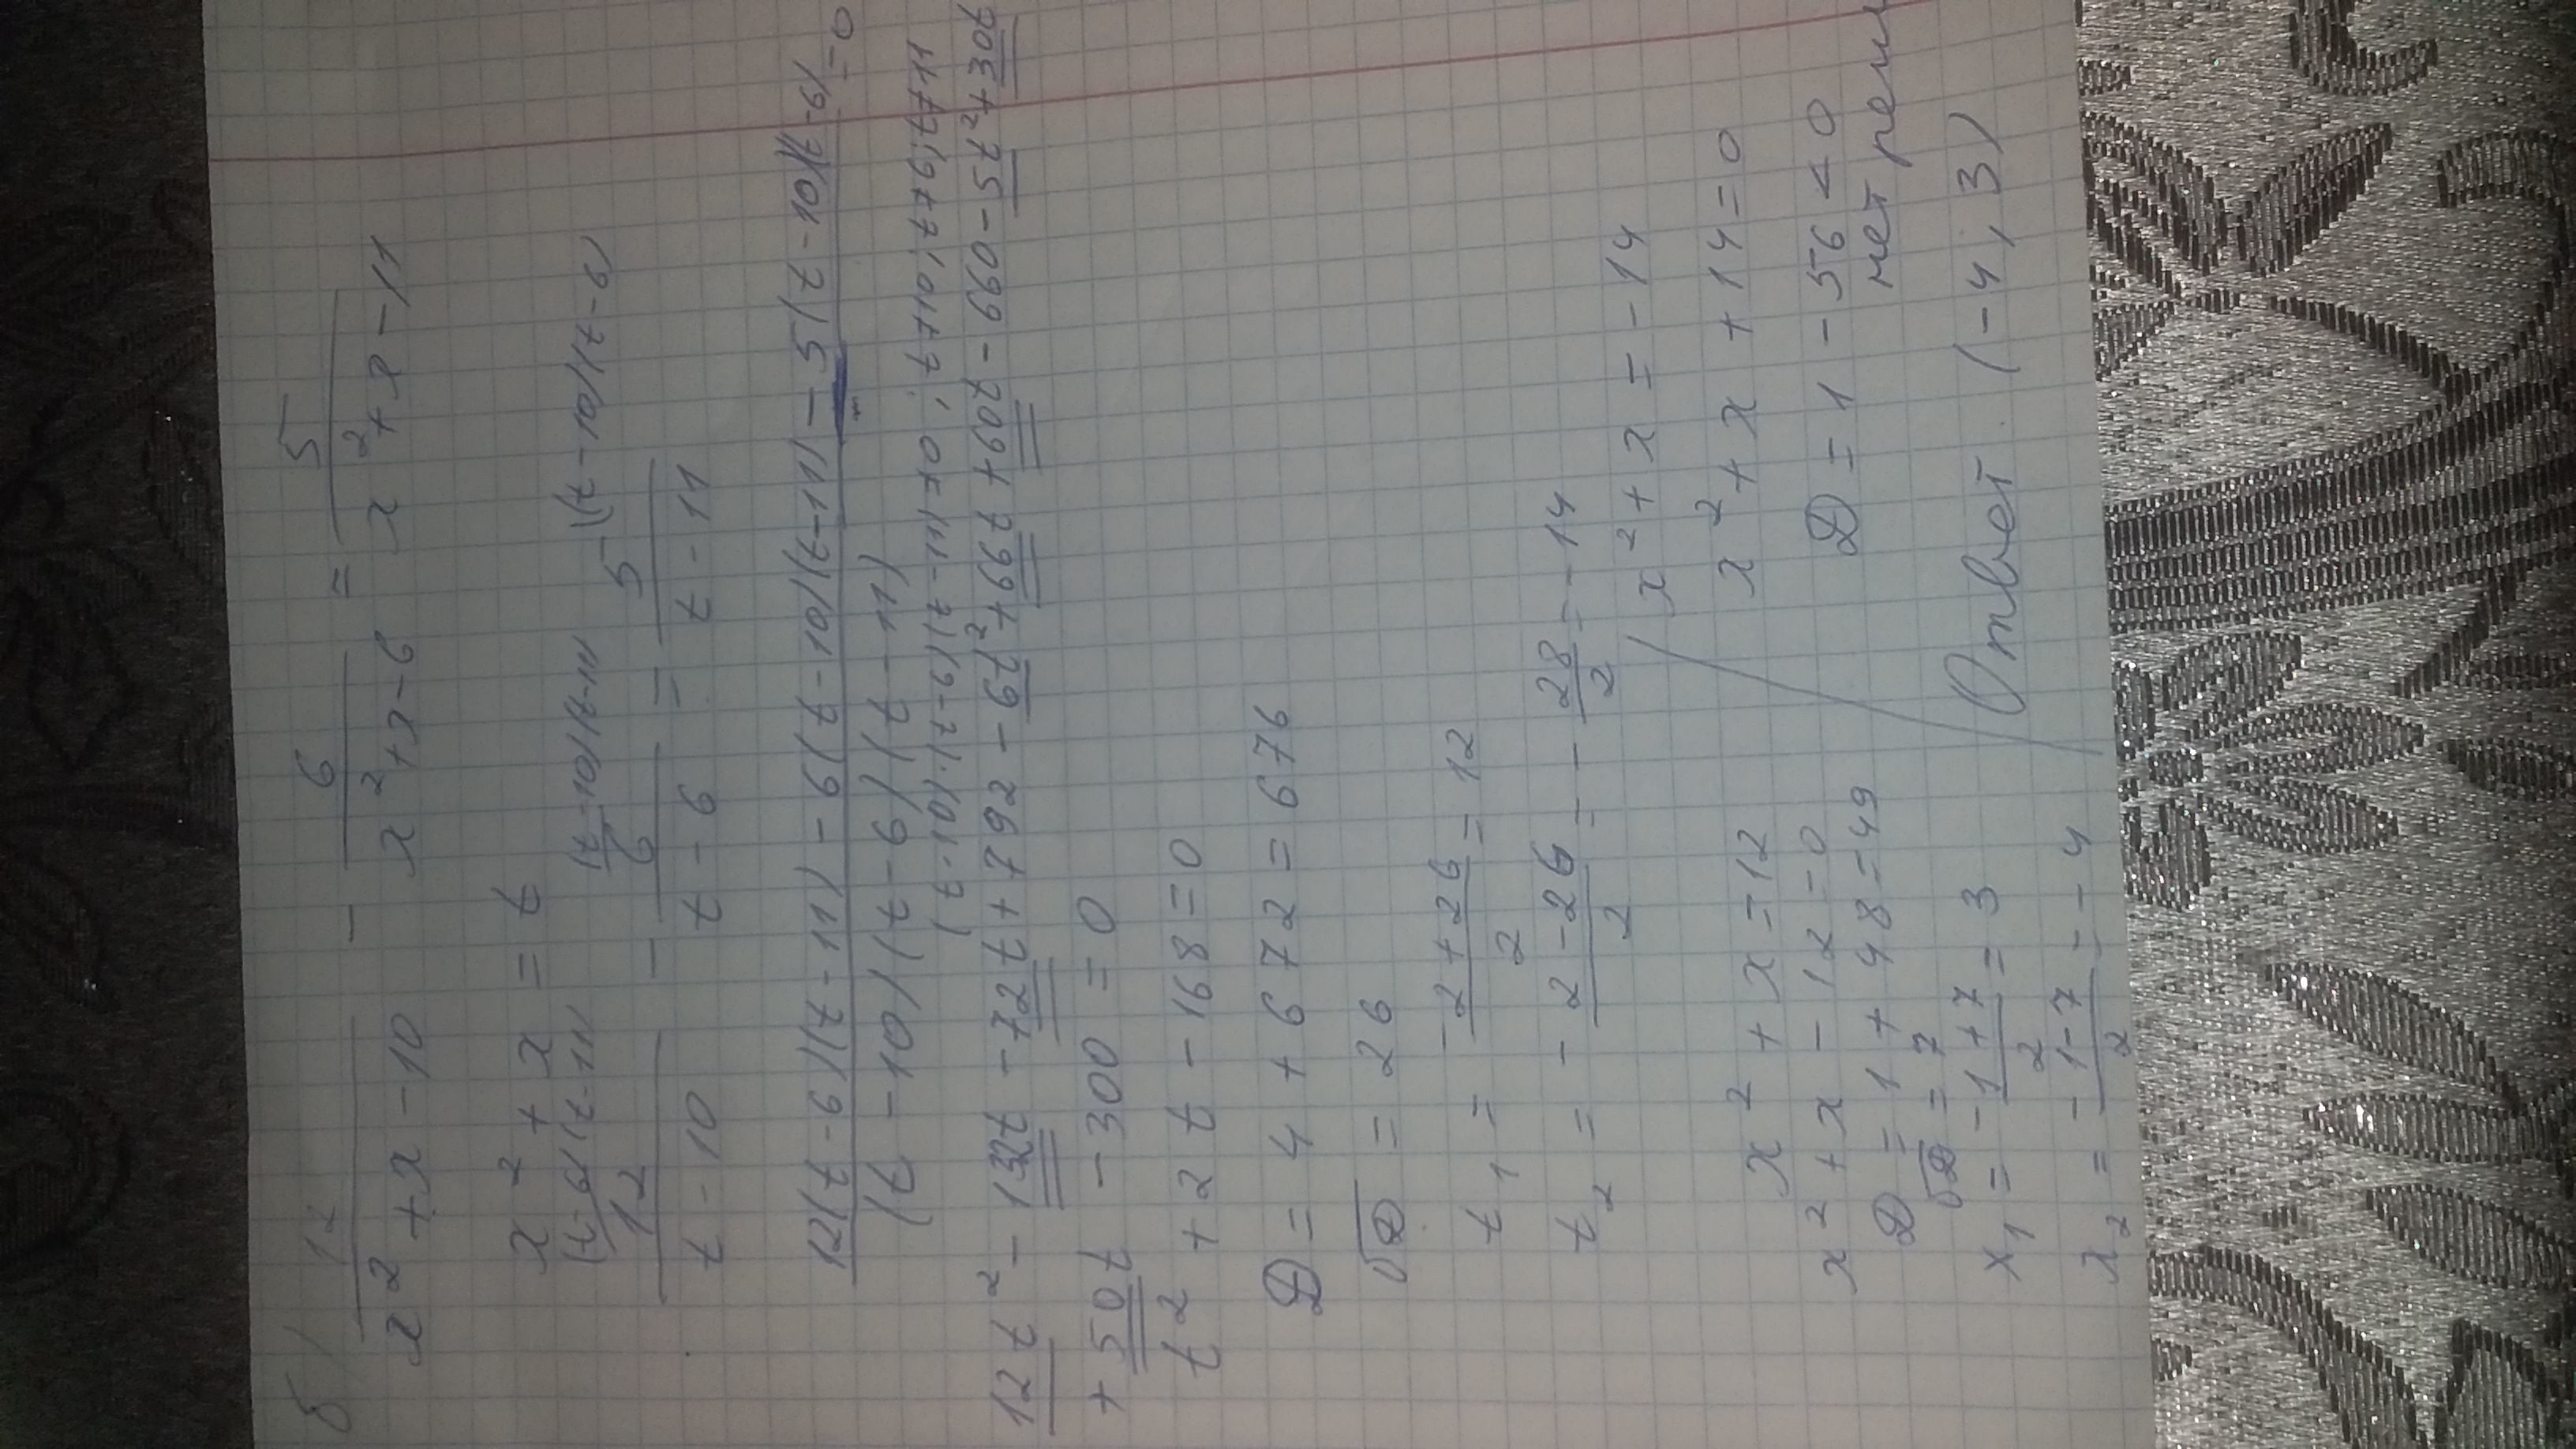 б) 12/(x² + x - 10) - 6/(x² + x - 6) = 5/(x² + x - 11)
x² + x = t
(t-6)(t-11) (t-10)(t-11) (t-10)(t-6)
12/(t - 10) - 6/(t - 6) = 5/(t - 11)
12(t-6)(t-11) - 6(t-10)(t-11) - 5(t-10)(t-6) = 0
(t - 10)(t - 6)(t - 11)
(t-10)·(t-6)(t-11 ≠ 0; t≠10; t≠6; t≠11
12t² - 132t - 72t + 792 - 6t² + 66t + 60t - 660 - 5t² + 30t
+ 50t - 300 = 0
t² + 2t - 168 = 0
D = 4 + 672 = 676
√D = 26
t₁ = (-2 + 26)/2 = 12
t₂ = - (2 - 26)/2 = - 28/2 = - 14
x² + x = 12
x² + x - 12 = 0
D = 1 + 48 = 49
√D = 7
x₁ = (-1 + 7)/2 = 3
x₂ = (-1 - 7)/2 = - 4
x² + x = - 14
x² + x + 14 = 0
D = 1 - 56 < 0
нет реш
Ответ. (-4; 3)